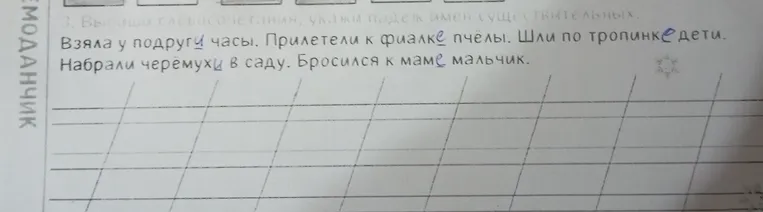 3. Выпиши словосочетания, укажи падеж имён существительных.
Взяла у подруги часы. Прилетели к фиалке пчёлы. Шли по тропинке дети.
Набрали черёмухи в саду. Бросился к маме мальчик.
ЕМОДАНЧИК